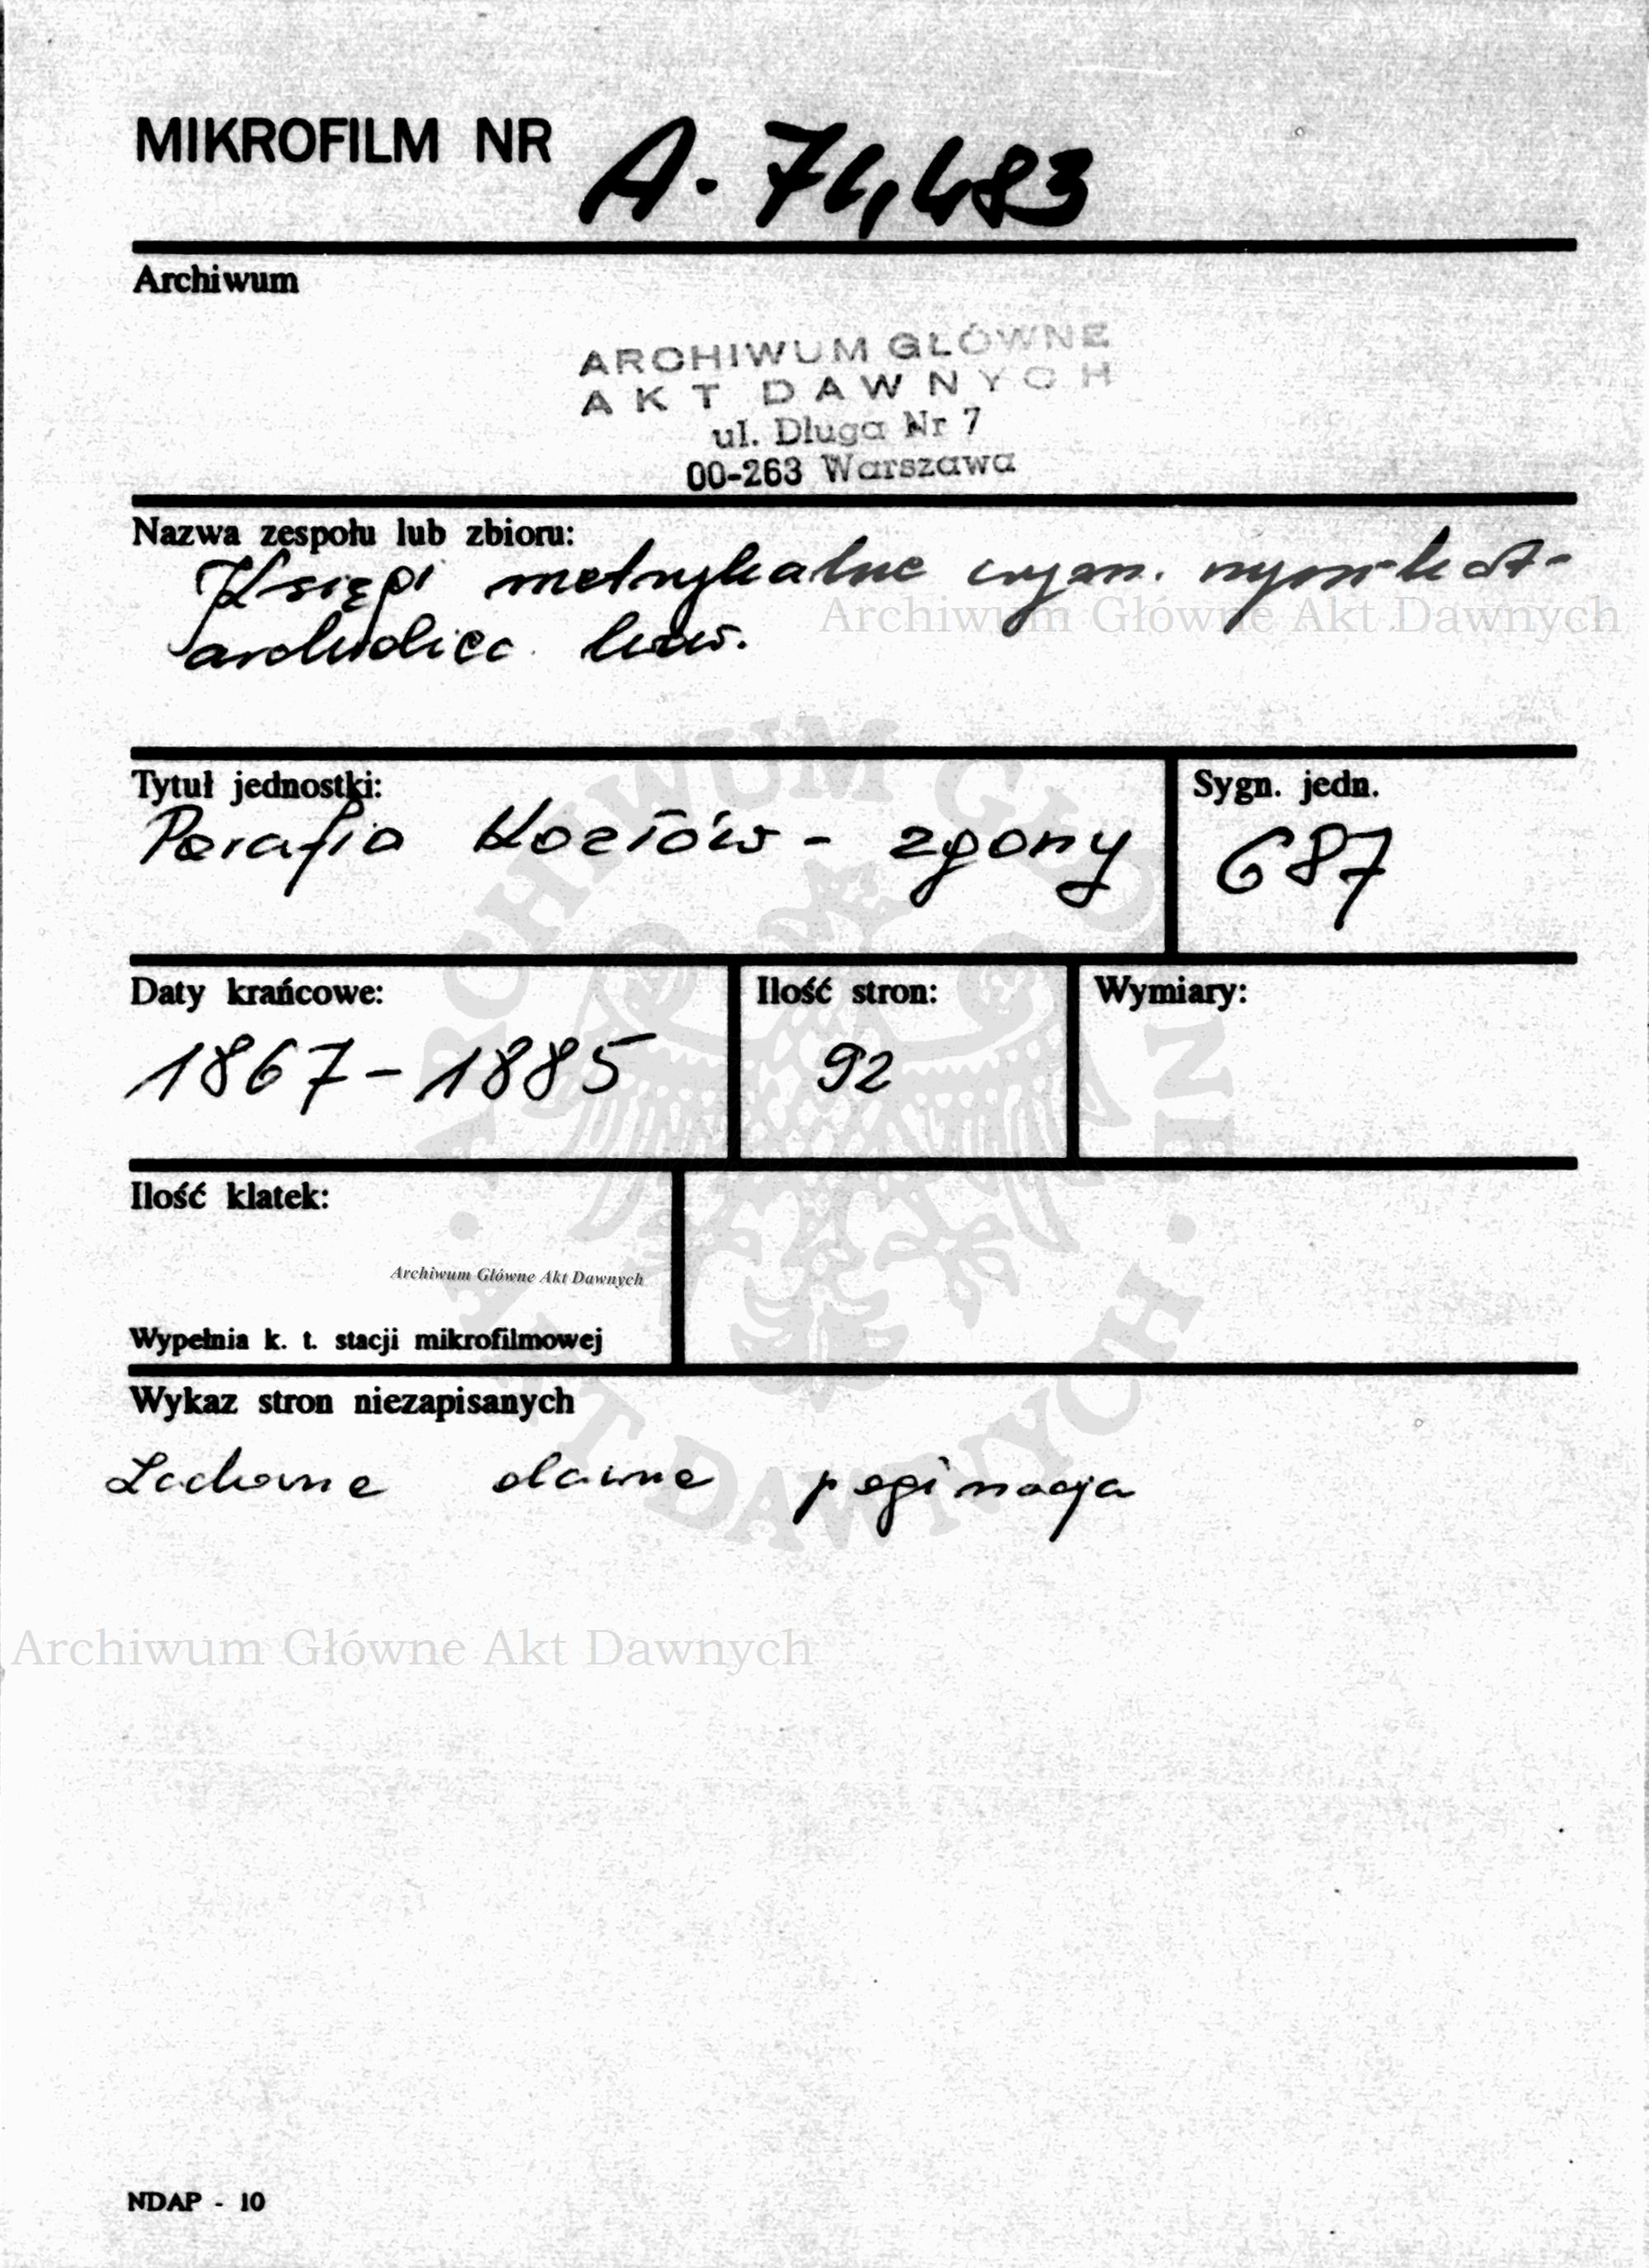 MIKROFILM NR A. 71,483
Archiwum
ARCHIWUM GŁÓWNE
AKT DAWNYCH
ul. Długa Nr 7
00-263 Warszawa
Nazwa zespołu lub zbioru:
Księgi metrykalne wyzn. rzym-kat-
Archiwum Główne Akt Dawnych
archidiec. lwow.
Tytuł jednostki:
Sygn. jedn.
Parafia Kozłów - zgony
687
Daty krańcowe:
Ilość stron:
Wymiary:
1867-1885
92
Ilość klatek:
Archiwum Główne Akt Dawnych
Wypełnia k. t. stacji mikrofilmowej
Wykaz stron niezapisanych
Zachowane dawne paginacja
ARCHIWUM GŁÓWNE · AKT DAWNYCH ·
Archiwum Główne Akt Dawnych
NDAP - 10